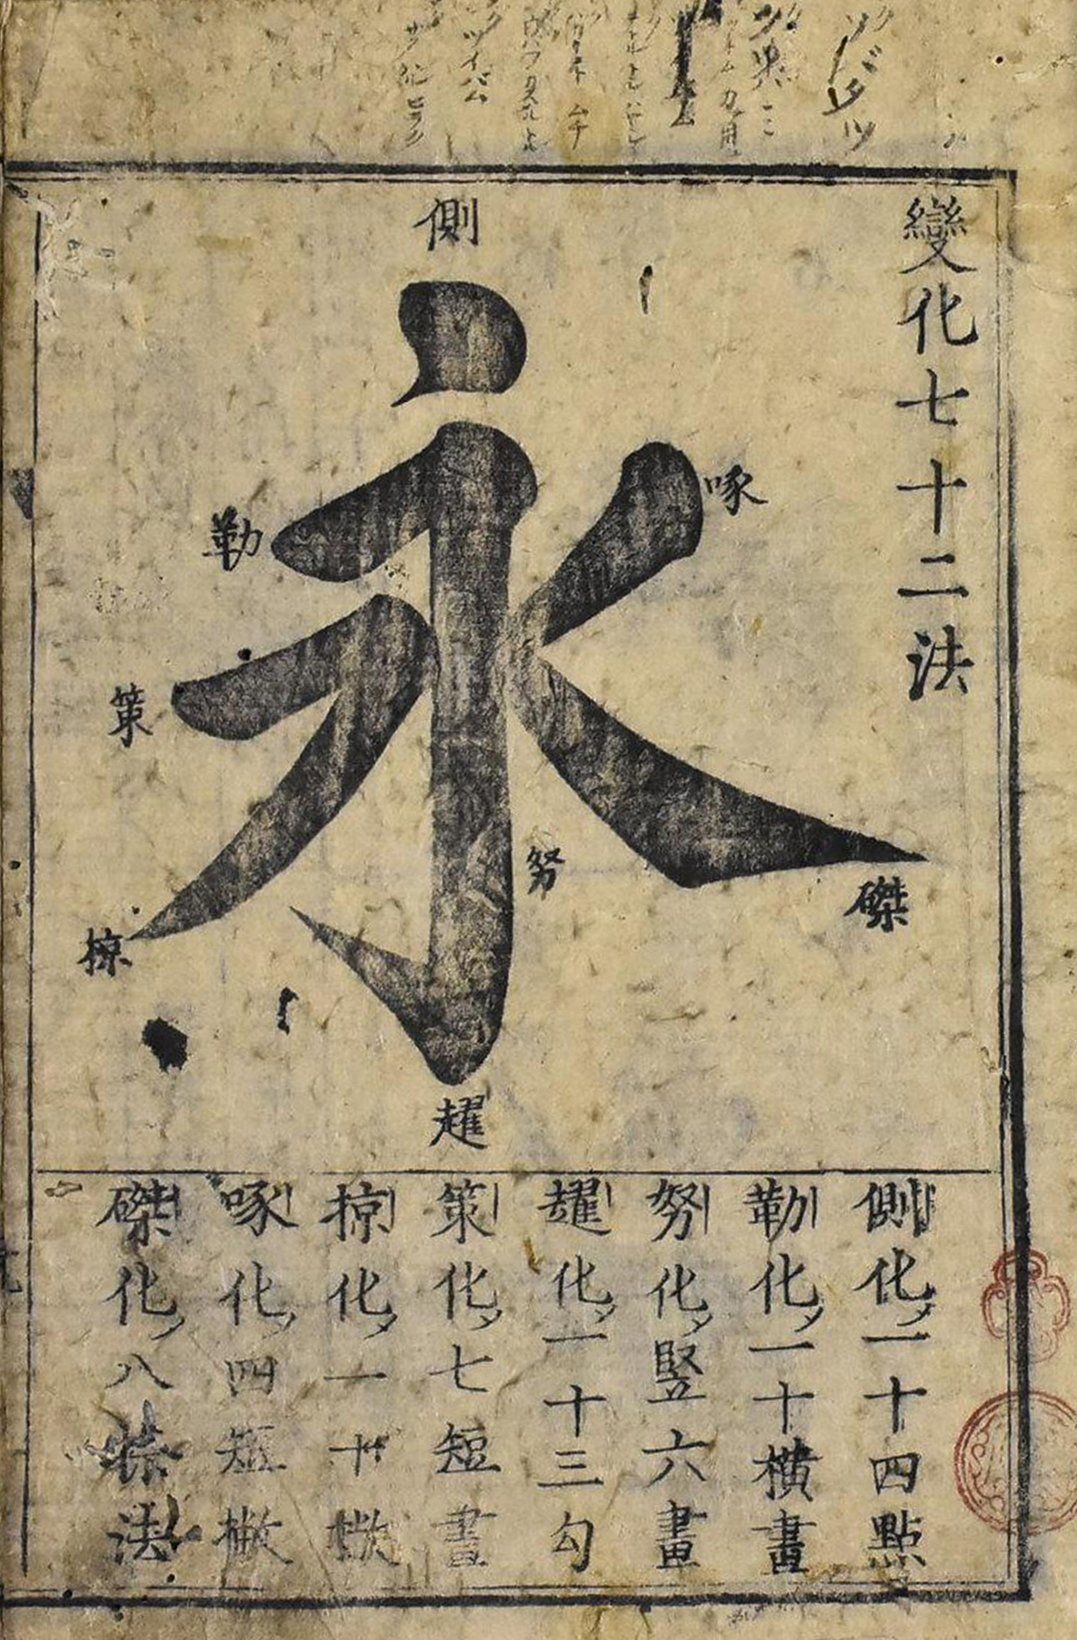 變化七十二法
側
勒
啄
策
努
掠
磔
趯
側化一十四點
勒化一十横畫
努化竪六畫
趯化一十三勾
策化七短畫
掠化一十撇
啄化四短撇
磔化八捺法